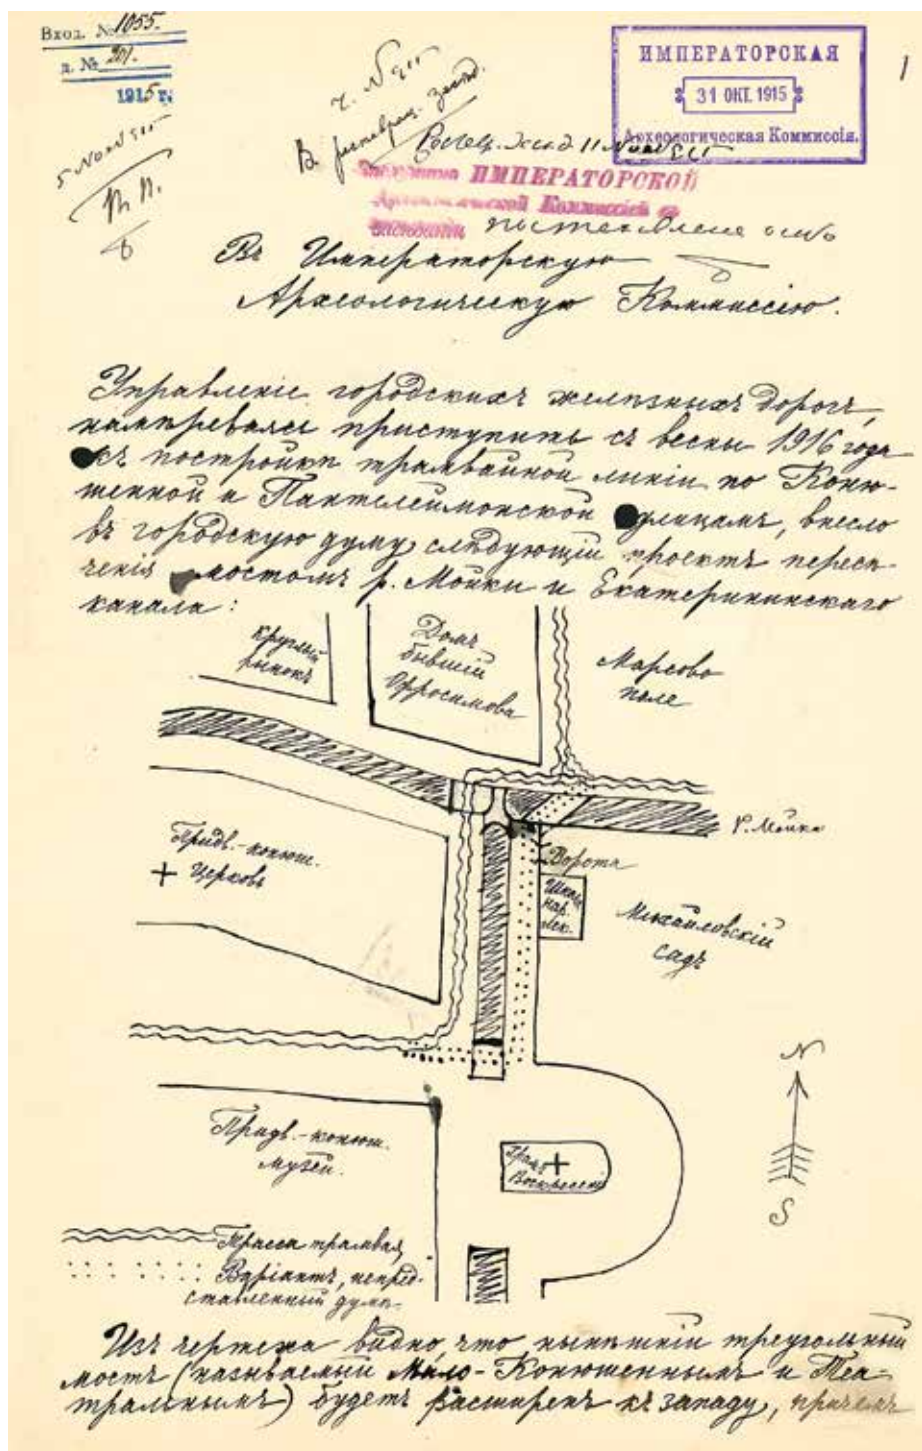 Вход. № 1055.
д. № 201.
1915 г.
5 Ноя 915
ИМПЕРАТОРСКАЯ
31 ОКТ. 1915
Археологическая Коммиссія.
1
В реставрац. засѣд.
ИМПЕРАТОРСКОЙ
Археологической Коммиссіей въ
засѣданіи
постановлено особо
Въ Императорскую
Археологическую Коммиссію.
Управленіе городскихъ желѣзныхъ дорогъ,
намѣреваясь приступить съ весны 1916 года
къ постройкѣ трамвайной линіи по Коню-
шенной и Пантелеймонской улицамъ, внесло
въ городскую думу слѣдующій проектъ пересѣ-
ченія мостомъ р. Мойки и Екатерининскаго
канала:
Круглый
рынокъ
Домъ
бывшій
Офросимова
Марсово
поле
р. Мойка
Придв.-конюш.
Церковь
Ворота
Школа
нар.
иск.
Михайловскій
садъ
N
Придв.-конюш.
музей.
Храмъ
Воскресенія
S
Трасса трамвая,
Варіантъ, непред-
ставленный думѣ.
Изъ чертежа видно, что нынѣшній треугольный
мостъ (называемый Мало-Конюшеннымъ и Теа-
тральнымъ) будетъ расширенъ къ западу, причемъ